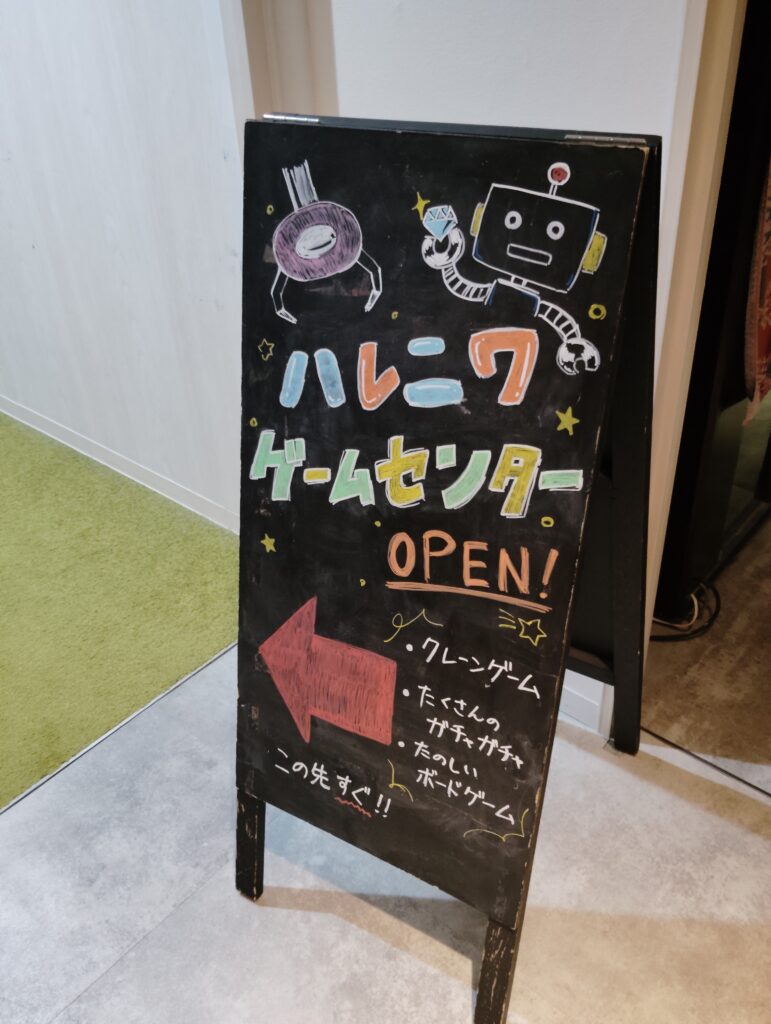 ハレニワ
ゲームセンター
OPEN!
・クレーンゲーム
・たくさんの
ガチャガチャ
・たのしい
ボードゲーム
この先すぐ!!